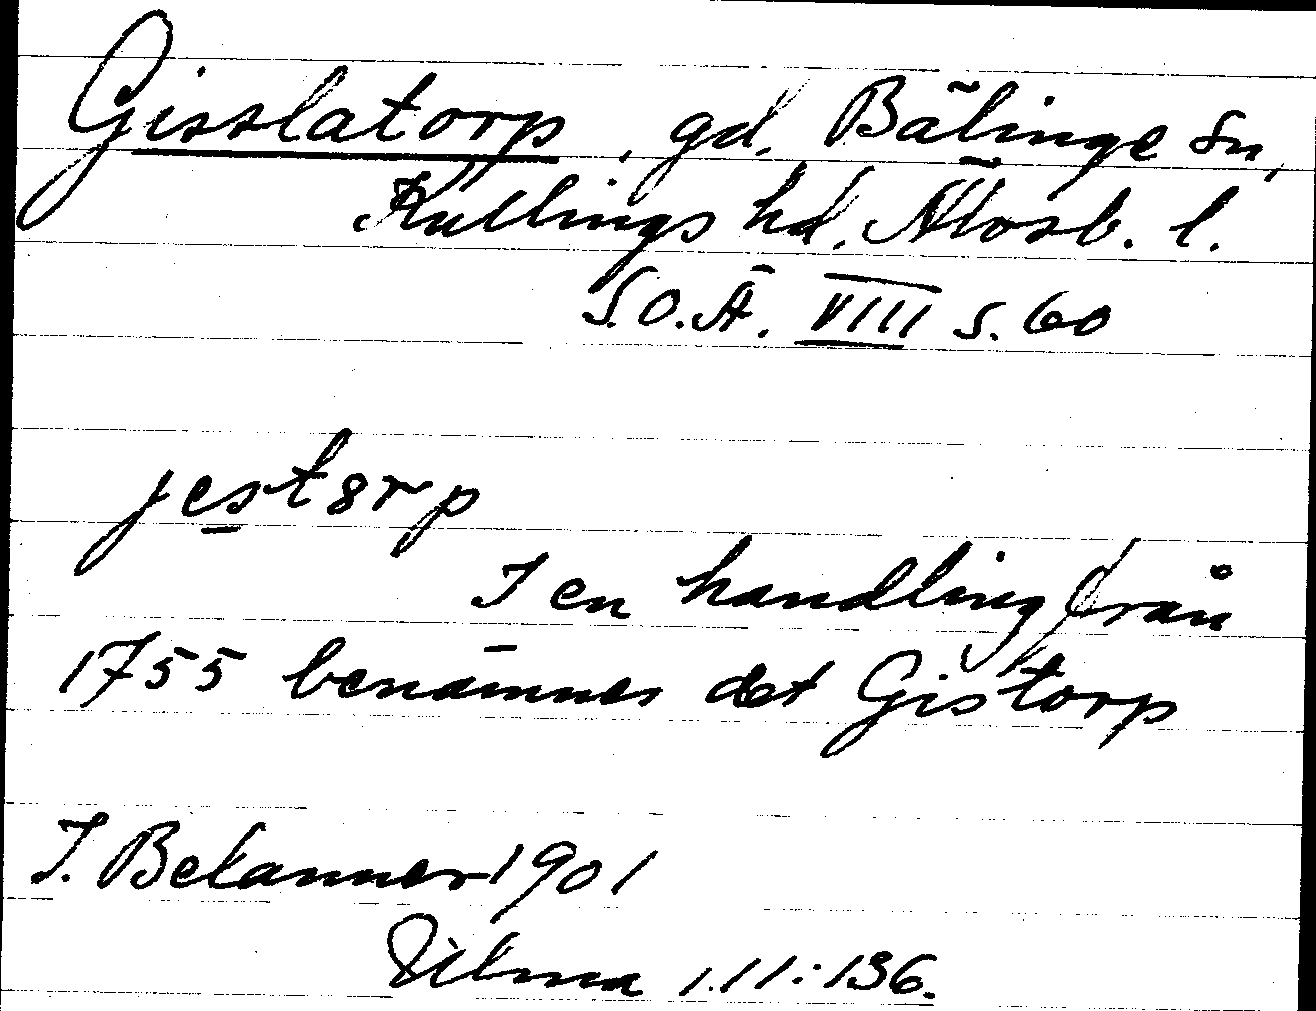 Gisslatorp, gd. Bälinge sn,
Kullings hd. Älvsb. l.
S.O.Ä. VIII s. 60
jestorp
I en handling från
1755 benämnes det Gistorp
J. 1901
1.11:136.